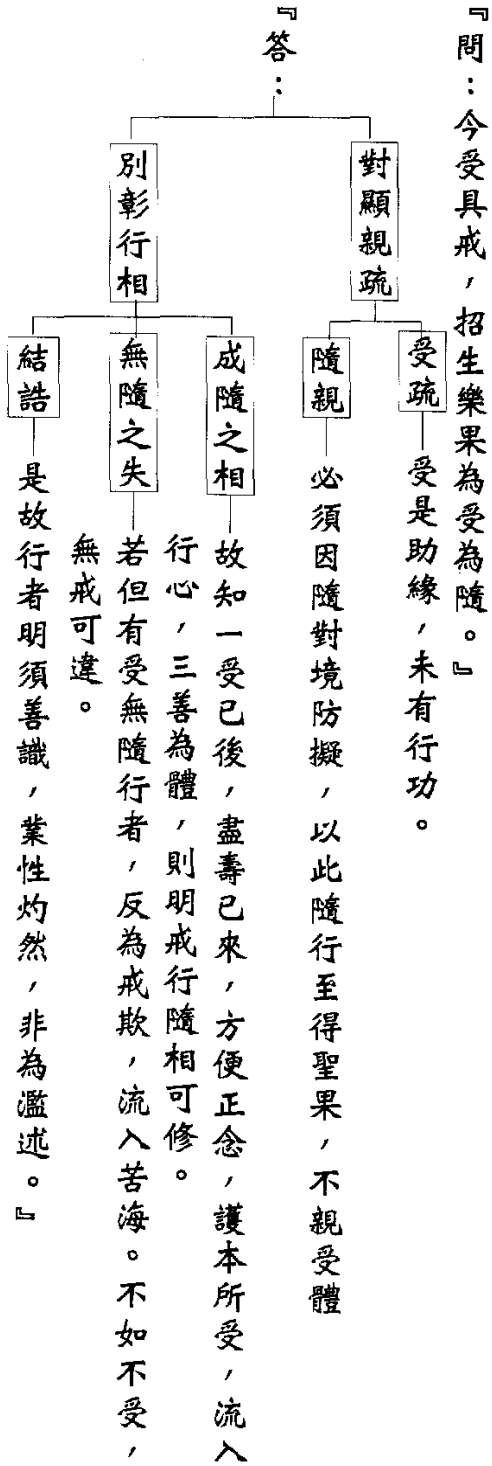 『問：今受具戒，招生樂果為受為隨。』
『答：
對顯親疏
受疏
受是助緣，未有行功。
隨親
必須因隨對境防擬，以此隨行至得聖果，不親受體
別彰行相
成隨之相
故知一受已後，盡壽已來，方便正念，護本所受，流入
行心，三善為體，則明戒行隨相可修。
無隨之失
若但有受無隨行者，反為戒欺，流入苦海。不如不受，
無戒可違。
結誥
是故行者明須善識，業性灼然，非為濫述。』